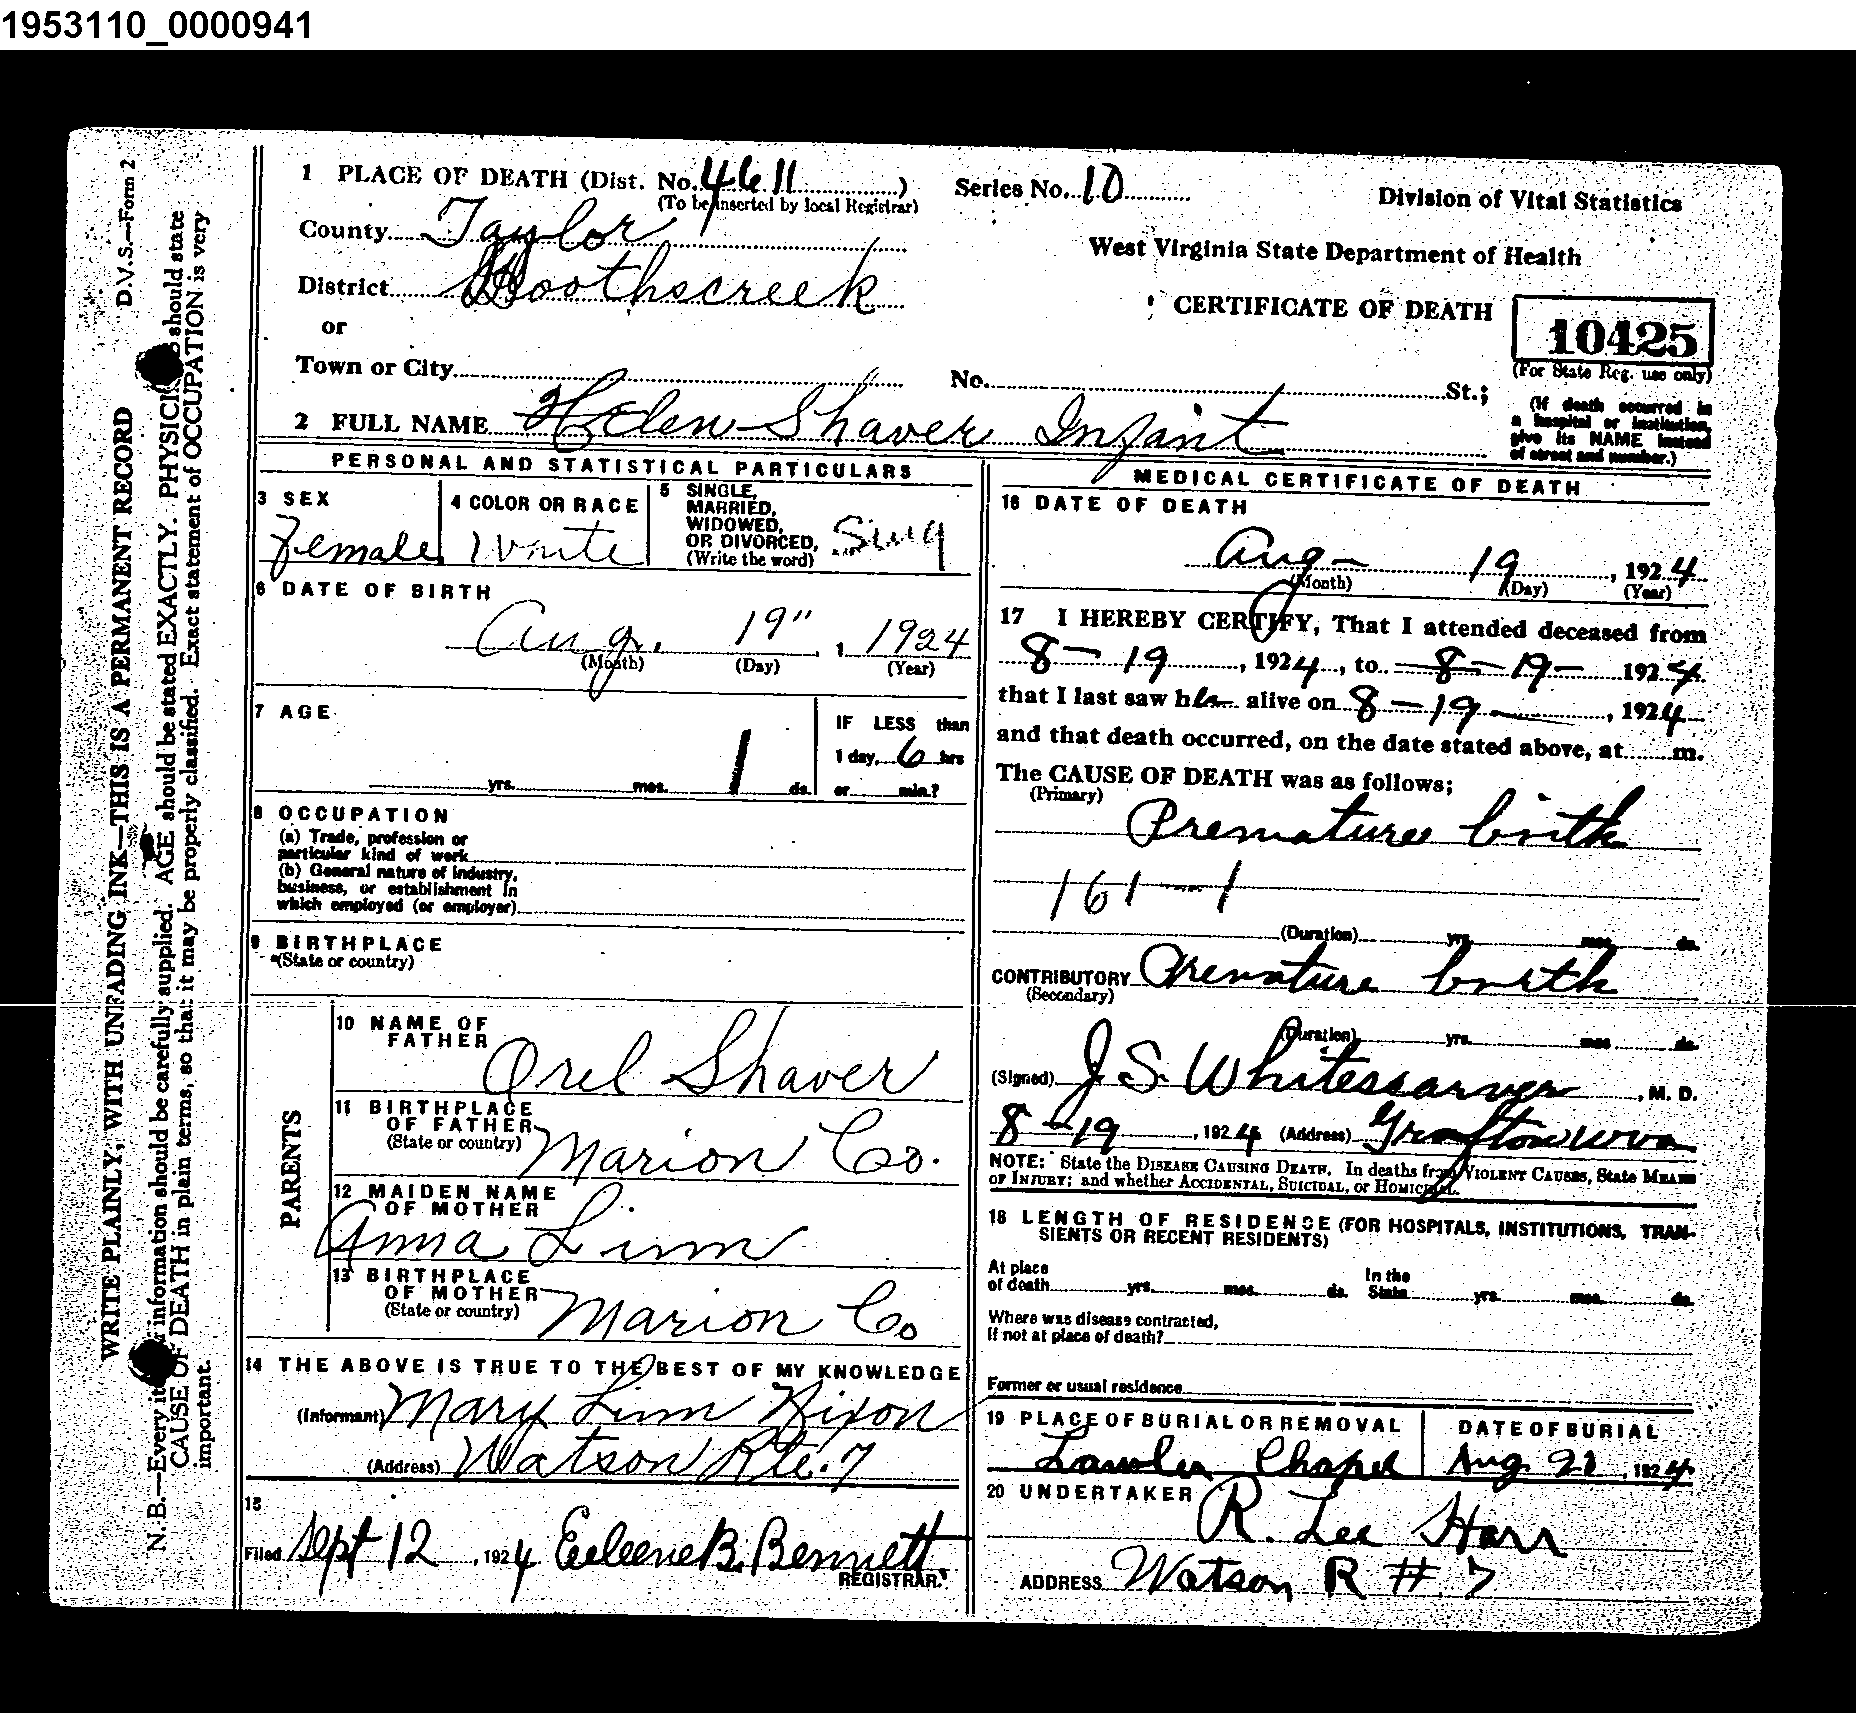 1953110_0000941
D.V.S.—Form 2
WRITE PLAINLY, WITH UNFADING INK—THIS IS A PERMANENT RECORD
N. B.—Every item of information should be carefully supplied. AGE should be stated EXACTLY. PHYSICIANS should state
CAUSE OF DEATH in plain terms, so that it may be properly classified. Exact statement of OCCUPATION is very
important.
1 PLACE OF DEATH (Dist. No. 4611)
(To be inserted by local Registrar)
Series No. 10
Division of Vital Statistics
County Taylor
West Virginia State Department of Health
District Boothscreek
CERTIFICATE OF DEATH
10425
(For State Reg. use only)
or
Town or City
No. St.;
(If death occurred in
a hospital or institution,
give its NAME instead
of street and number.)
2 FULL NAME Helen Shaver Infant
PERSONAL AND STATISTICAL PARTICULARS
3 SEX
Female
4 COLOR OR RACE
White
5 SINGLE,
MARRIED,
WIDOWED,
OR DIVORCED,
(Write the word)
Sing
6 DATE OF BIRTH
Aug. 19" , 1924
(Month) (Day) (Year)
7 AGE
yrs. mos. 1 ds.
IF LESS than
1 day, 6 hrs
or min.?
8 OCCUPATION
(a) Trade, profession or
particular kind of work
(b) General nature of industry,
business, or establishment in
which employed (or employer)
9 BIRTHPLACE
(State or country)
PARENTS
10 NAME OF
FATHER
Orel Shaver
11 BIRTHPLACE
OF FATHER
(State or country)
Marion Co.
12 MAIDEN NAME
OF MOTHER
Anna Linn
13 BIRTHPLACE
OF MOTHER
(State or country)
Marion Co
14 THE ABOVE IS TRUE TO THE BEST OF MY KNOWLEDGE
(Informant) Mary Linn Nixon
(Address) Watson Rte. 7
15
Filed Sept 12, 1924 Eeleene B. Bennett
REGISTRAR.
MEDICAL CERTIFICATE OF DEATH
16 DATE OF DEATH
Aug— 19, 1924
(Month) (Day) (Year)
17 I HEREBY CERTIFY, That I attended deceased from
8—19, 1924, to 8—19— 1924
that I last saw her alive on 8—19—, 1924
and that death occurred, on the date stated above, at m.
The CAUSE OF DEATH was as follows;
(Primary)
Premature birth
161—1
(Duration) yrs. mos. ds.
CONTRIBUTORY Premature birth
(Secondary)
(Duration) yrs. mos. ds.
(Signed) J. S. Whitescarver, M. D.
8—19, 1924 (Address) Grafton W Va
NOTE: State the DISEASE CAUSING DEATH. In deaths from VIOLENT CAUSES, State MEANS
OF INJURY; and whether ACCIDENTAL, SUICIDAL, or HOMICIDAL.
18 LENGTH OF RESIDENCE (FOR HOSPITALS, INSTITUTIONS, TRAN-
SIENTS OR RECENT RESIDENTS)
At place
of death yrs. mos. ds.
In the
State yrs. mos. ds.
Where was disease contracted,
if not at place of death?
Former or usual residence
19 PLACE OF BURIAL OR REMOVAL
Lawler Chapel
DATE OF BURIAL
Aug, 1924
20 UNDERTAKER
R. Lee Harr
ADDRESS Watson R # 7